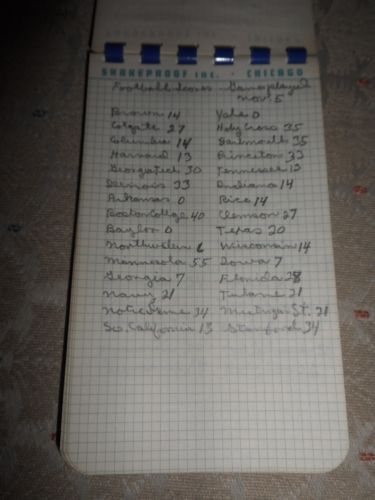 SHAKEPROOF INC. · CHICAGO
Football Scores - Games played
Nov. 5
Brown 14 Yale 0
Colgate 27 Holy Cross 35
Columbia 14 Dartmouth 35
Harvard 13 Princeton 33
Georgia Tech 30 Tennessee 13
Illinois 33 Indiana 14
Arkansas 0 Rice 14
Boston College 40 Clemson 27
Baylor 0 Texas 20
Northwestern 6 Wisconsin 14
Minnesota 55 Iowa 7
Georgia 7 Florida 28
Navy 21 Tulane 21
Notre Dame 34 Michigan St. 21
So. California 13 Stanford 34